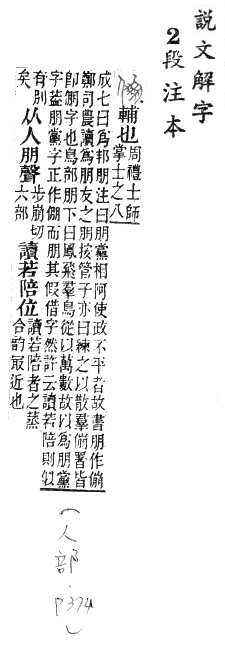 說文解字
2段注本
倗 輔也 周禮士師
掌士之八
成七曰爲邦朋注曰朋黨相阿使政不平者故書朋作倗
鄭司農讀爲朋友之朋按管子亦曰練之以散羣倗署皆
卽倗字也鳥部朋下曰鳳飛羣鳥從以萬數故以爲朋黨
字蓋朋黨字正作倗而朋其假借字然許云讀若陪則似
有別
矣
从人朋聲
步崩切
六部
讀若陪位
讀若陪者之蒸
合韵最近也
(人部.P374)